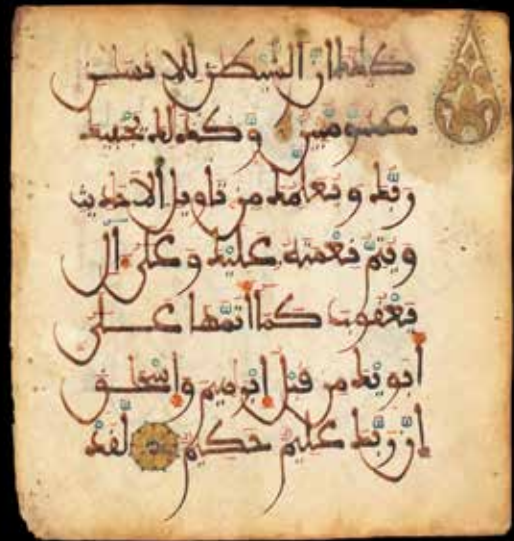 كيدا ان الشيطن للانسن
عدو مبين وكذلك يجتبيك
ربك ويعلمك من تاويل الاحاديث
ويتم نعمته عليك وعلى ال
يعقوب كما اتمها على
ابويك من قبل ابرهيم واسحق
ان ربك عليم حكيم لقد